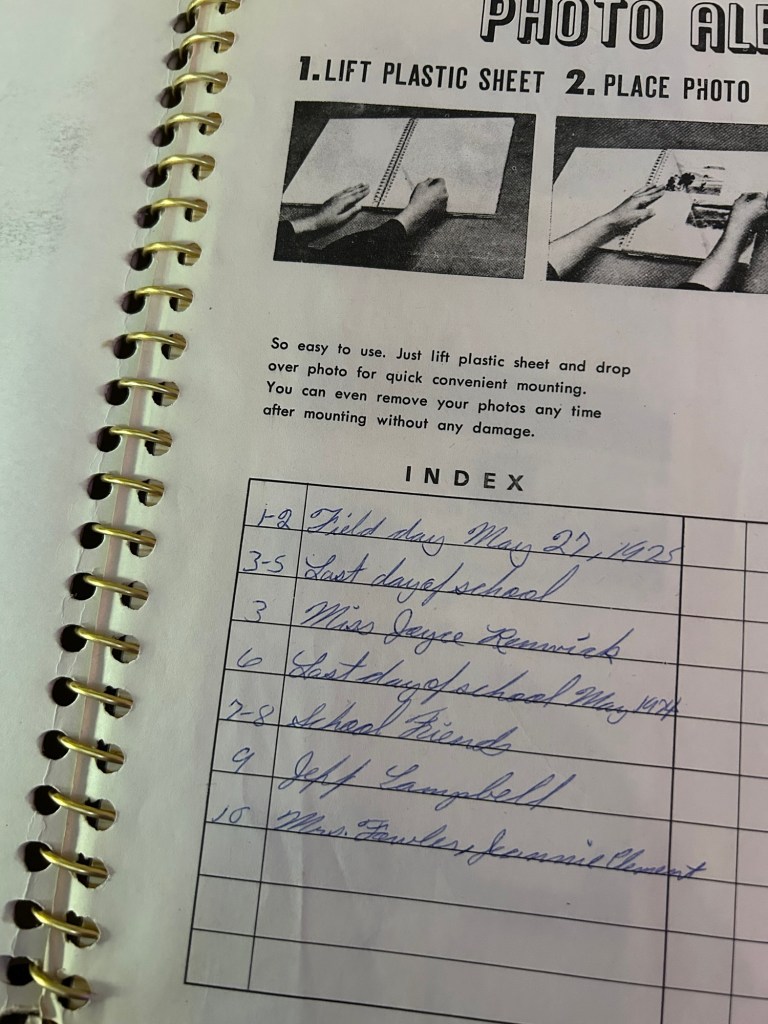 PHOTO ALB
1. LIFT PLASTIC SHEET 2. PLACE PHOTO
So easy to use. Just lift plastic sheet and drop
over photo for quick convenient mounting.
You can even remove your photos any time
after mounting without any damage.
INDEX
1-2 Field day May 27, 1975
3-5 Last day of school
3 Miss Joyce Renwick
6 Last day of school May 1974
7-8 School Friends
9 Jeff Campbell
10 Mrs. Fowler, Jeannie Clement